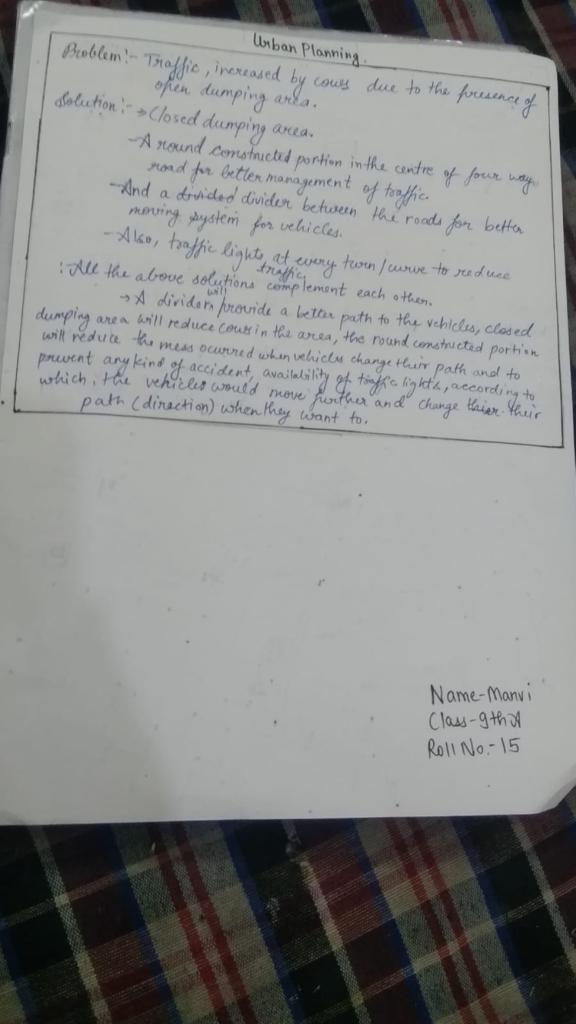 Urban Planning.
Problem:- Traffic, increased by cows due to the presence of
open dumping area.
Solution:- → Closed dumping area.
- A round constructed portion in the centre of four way
road for better management of traffic.
- And a divided divider between the roads for better
moving system for vehicles.
- Also, traffic lights, at every turn/curve to reduce
traffic
: All the above solutions complement each other.
will
→ A dividers provide a better path to the vehicles, closed
dumping area will reduce cows in the area, the round constructed portion
will reduce the mess ocurred when vehicles change their path and to
prevent any kind of accident, availability of traffic lights, according to
which, the vehicles would move further and change their
path (direction) when they want to.
Name-Manvi
Class-9th A
Roll No.-15